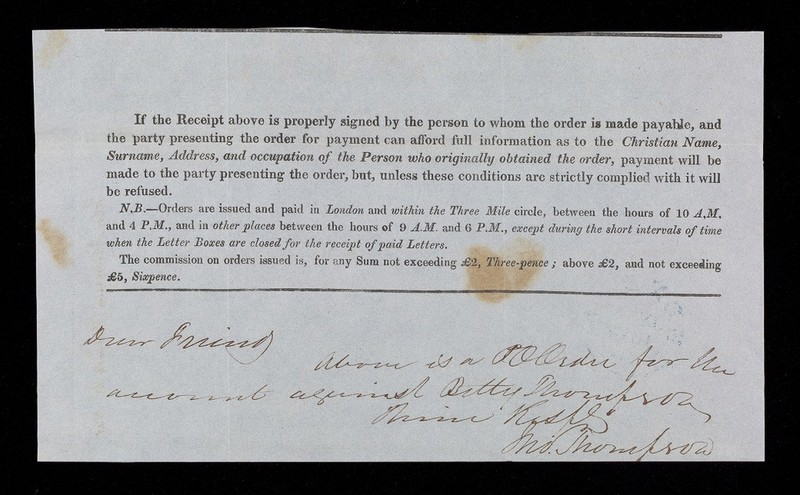 If the Receipt above is properly signed by the person to whom the order is made payable, and
the party presenting the order for payment can afford full information as to the Christian Name,
Surname, Address, and occupation of the Person who originally obtained the order, payment will be
made to the party presenting the order, but, unless these conditions are strictly complied with it will
be refused.
N.B.—Orders are issued and paid in London and within the Three Mile circle, between the hours of 10 A,M.
and 4 P.M., and in other places between the hours of 9 A.M. and 6 P.M., except during the short intervals of time
when the Letter Boxes are closed for the receipt of paid Letters.
The commission on orders issued is, for any Sum not exceeding £2, Three-pence; above £2, and not exceeding
£5, Sixpence.
Dear Friend
Above is a PO Order for the
account against Betty Thompson
Thine
Thompson